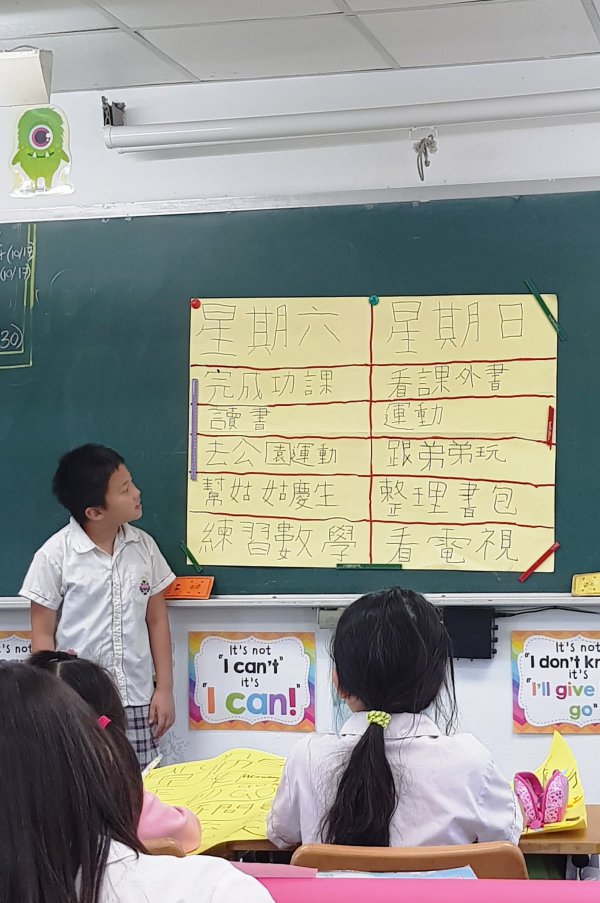 (10/17)
(10/17)
30)
星期六 星期日
完成功課 看課外書
讀書 運動
去公園運動 跟弟弟玩
幫姑姑慶生 整理書包
練習數學 看電視
It's not
"I can't"
it's
"I can!"
It's not
"I don't kn
it's
"I'll give
go"